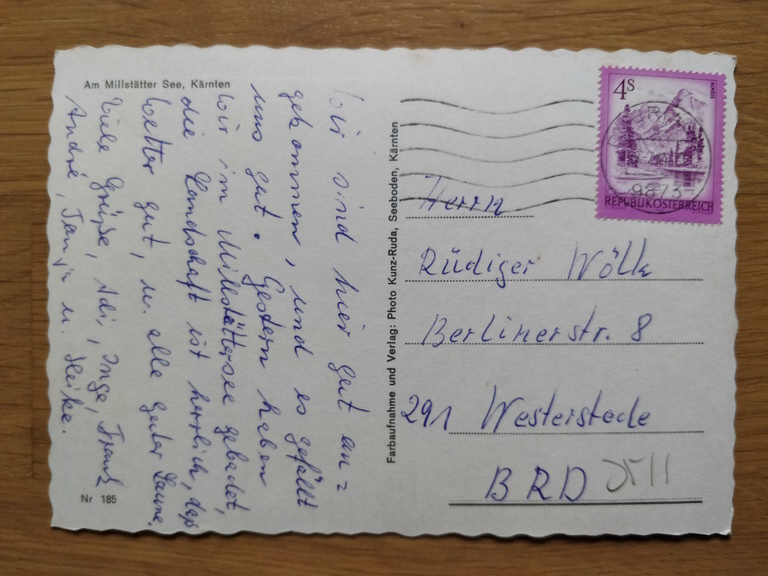 Am Millstätter See, Kärnten
Wir sind hier gut an=
gekommen, und es gefällt
uns gut. Gestern haben
wir im Millstättersee gebadet,
die Landschaft ist herrlich, das
Wetter gut, u. alle guter Laune.
Viele Grüße, Adi, Inge, Frank
André, Tanja u. Heike.
Nr 185
Farbaufnahme und Verlag: Photo Kunz-Ruda, Seeboden, Kärnten
4S
9873
REPUBLIK ÖSTERREICH
Herrn
Rüdiger Wölk
Berlinerstr. 8
291 Westerstede
BRD